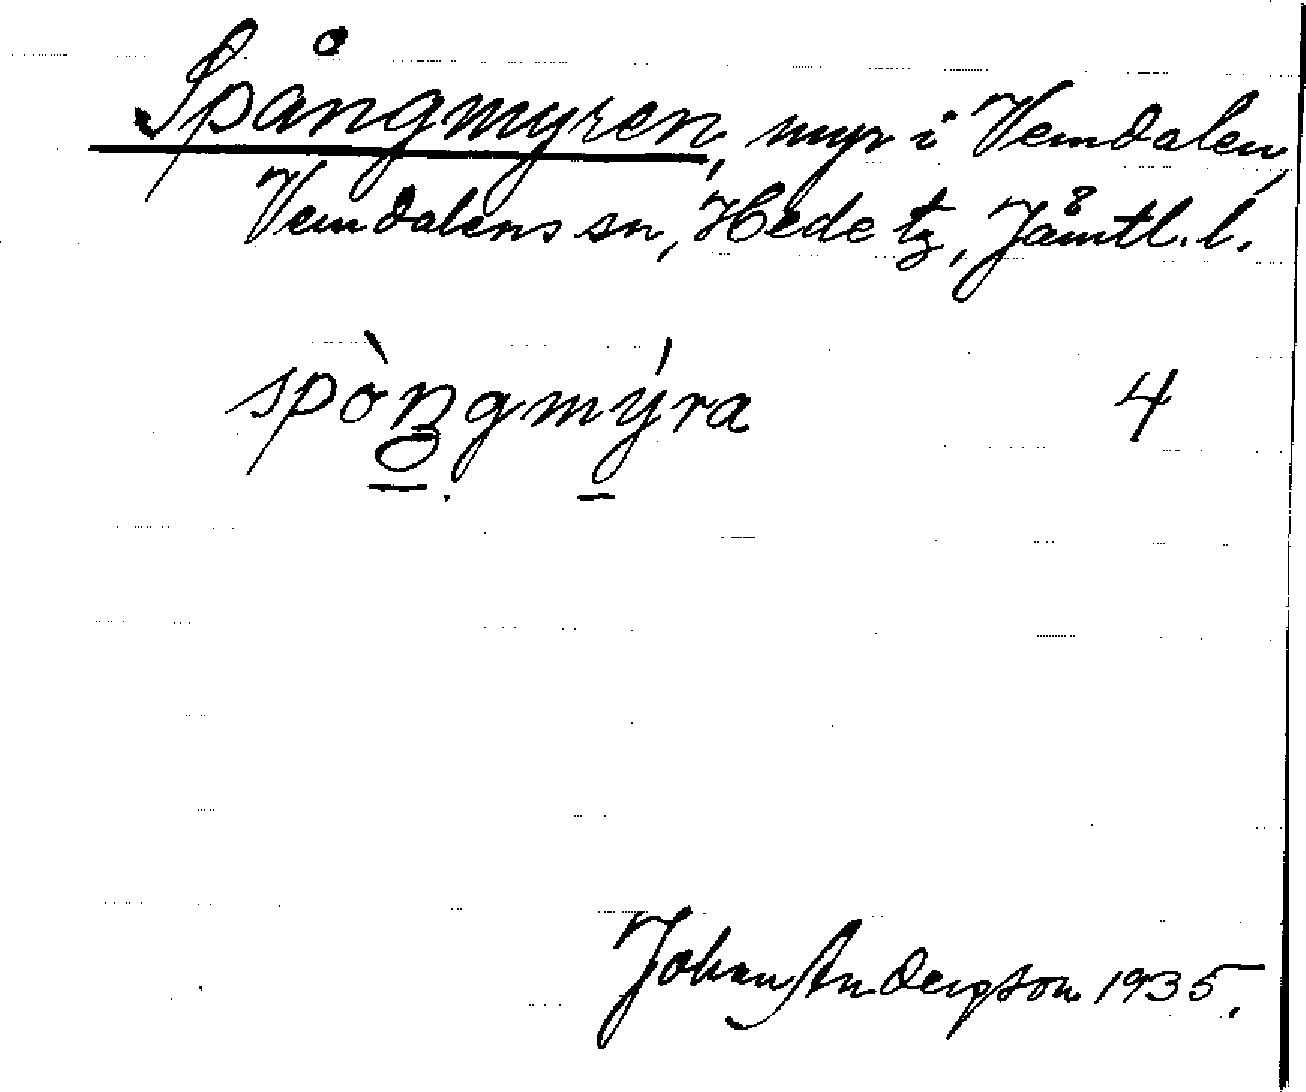 Spångmyren, myr i Vemdalen,
Vemdalens sn, Hede tg, Jämtl. l.
spòŋgmýra 4
Johan Andersson 1935.